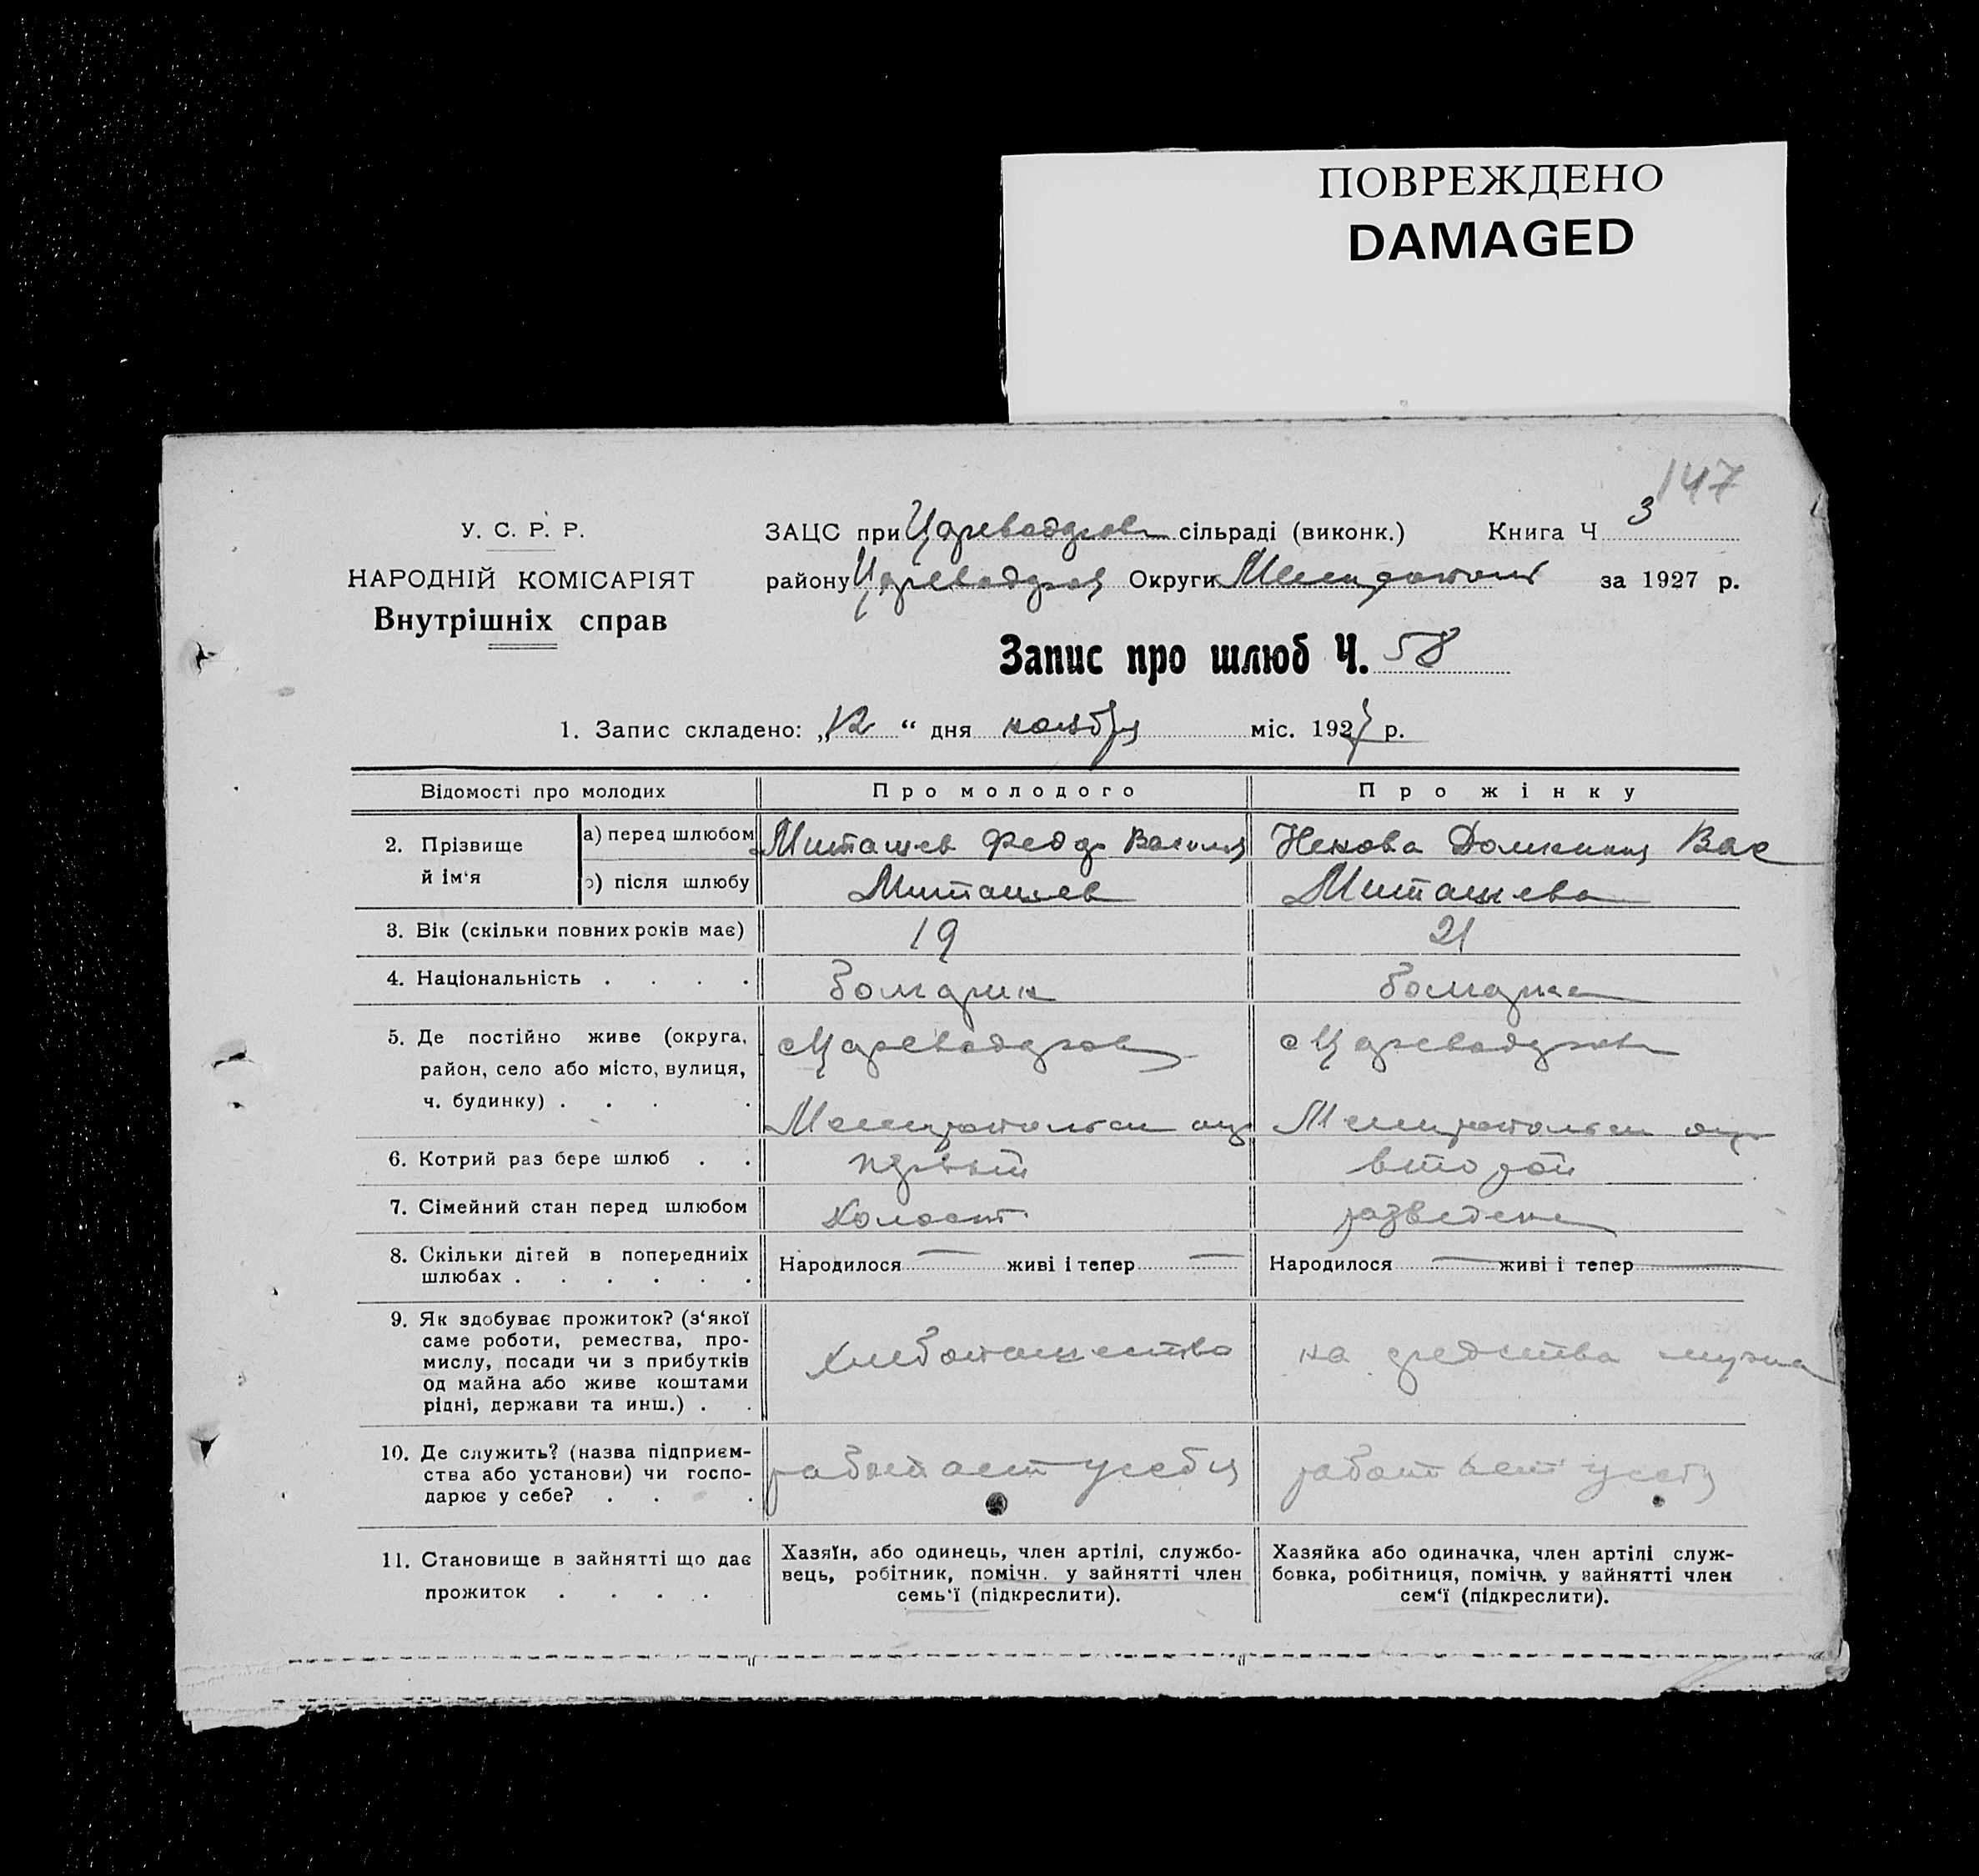 ПОВРЕЖДЕНО
DAMAGED
147
У. С. Р. Р.
НАРОДНІЙ КОМІСАРІЯТ
Внутрішніх справ
ЗАЦС при Цареводаров сільраді (виконк.) Книга Ч 3
району Цареводаров Округи за 1927 р.
Запис про шлюб Ч. 58
1. Запис складено: „12“ дня ноября міс. 1927 р.
Відомості про молодих Про молодого Про жінку
2. Прізвище й ім'я
а) перед шлюбом Миташев Федор Васил Ненова Домникия Вас
б) після шлюбу Миташев Миташева
3. Вік (скільки повних років має) 19 21
4. Національність . . . . болгарин болгарка
5. Де постійно живе (округа,
район, село або місто, вулиця,
ч. будинку) . . . .
с Цареводаров с Цареводаров
Мелитопольск окр Мелитопольск окр
6. Котрий раз бере шлюб . . первый второй
7. Сімейний стан перед шлюбом холост разведена
8. Скільки дітей в попередниіх
шлюбах . . . . . .
Народилося — живі і тепер — Народилося — живі і тепер —
9. Як здобуває прожиток? (з'якої
саме роботи, ремества, про-
мислу, посади чи з прибутків
од майна або живе коштами
рідні, держави та инш.) . .
хлебопашество на средства мужа
10. Де служить? (назва підприєм-
ства або установи) чи госпо-
дарює у себе? . . .
работает у себя работает у себя
11. Становище в зайнятті що дає
прожиток . . . .
Хазяїн, або одинець, член артілі, службо-
вець, робітник, помічн. у зайнятті член
семь'ї (підкреслити).
Хазяйка або одиначка, член артілі служ-
бовка, робітниця, помічн. у зайнятті член
сем'ї (підкреслити).